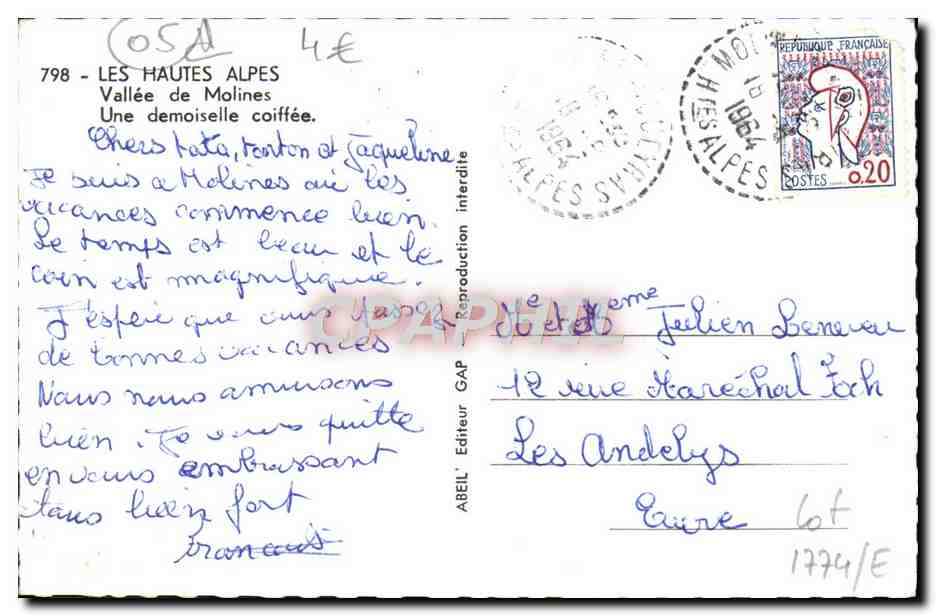 05
4€
798 - LES HAUTES ALPES
Vallée de Molines
Une demoiselle coiffée.
Chers tata, tonton et Jaqueline
Je suis a Molines où les
vacances commence bien.
Le temps est beau et le
coin est magnifique.
J'espére que vous passez
de bonnes vacances
Nous nous amusons
bien. Je vous quitte
en vous embrassant
tous bien fort
ABEIL' Editeur GAP - Reproduction interdite
CPAPHIL
REPUBLIQUE FRANÇAISE
POSTES 0.20
1964
HTES ALPES
1964
ALPES
Me et Meme Julien Leneveu
12 rue Maréchal Foch
Les Andelys
Eure
lot
1774/E